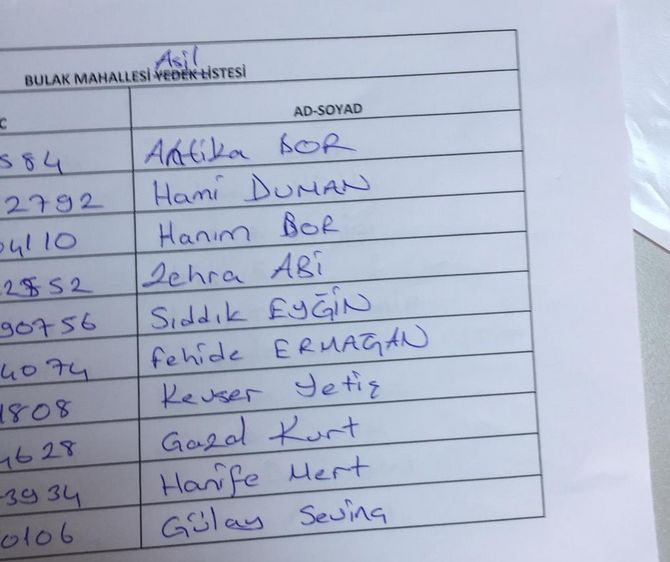 Asil
BULAK MAHALLESİ YEDEK LİSTESİ
C AD-SOYAD
584 Antika BOR
2792 Hami DUMAN
04110 Hanım BOR
2852 Zehra ABİ
90756 Sıddık EYĞİN
4074 Fehide ERMAĞAN
1808 Kevser Yetiş
4628 Gazal Kurt
3934 Hanife Mert
0106 Gülay Sevinç